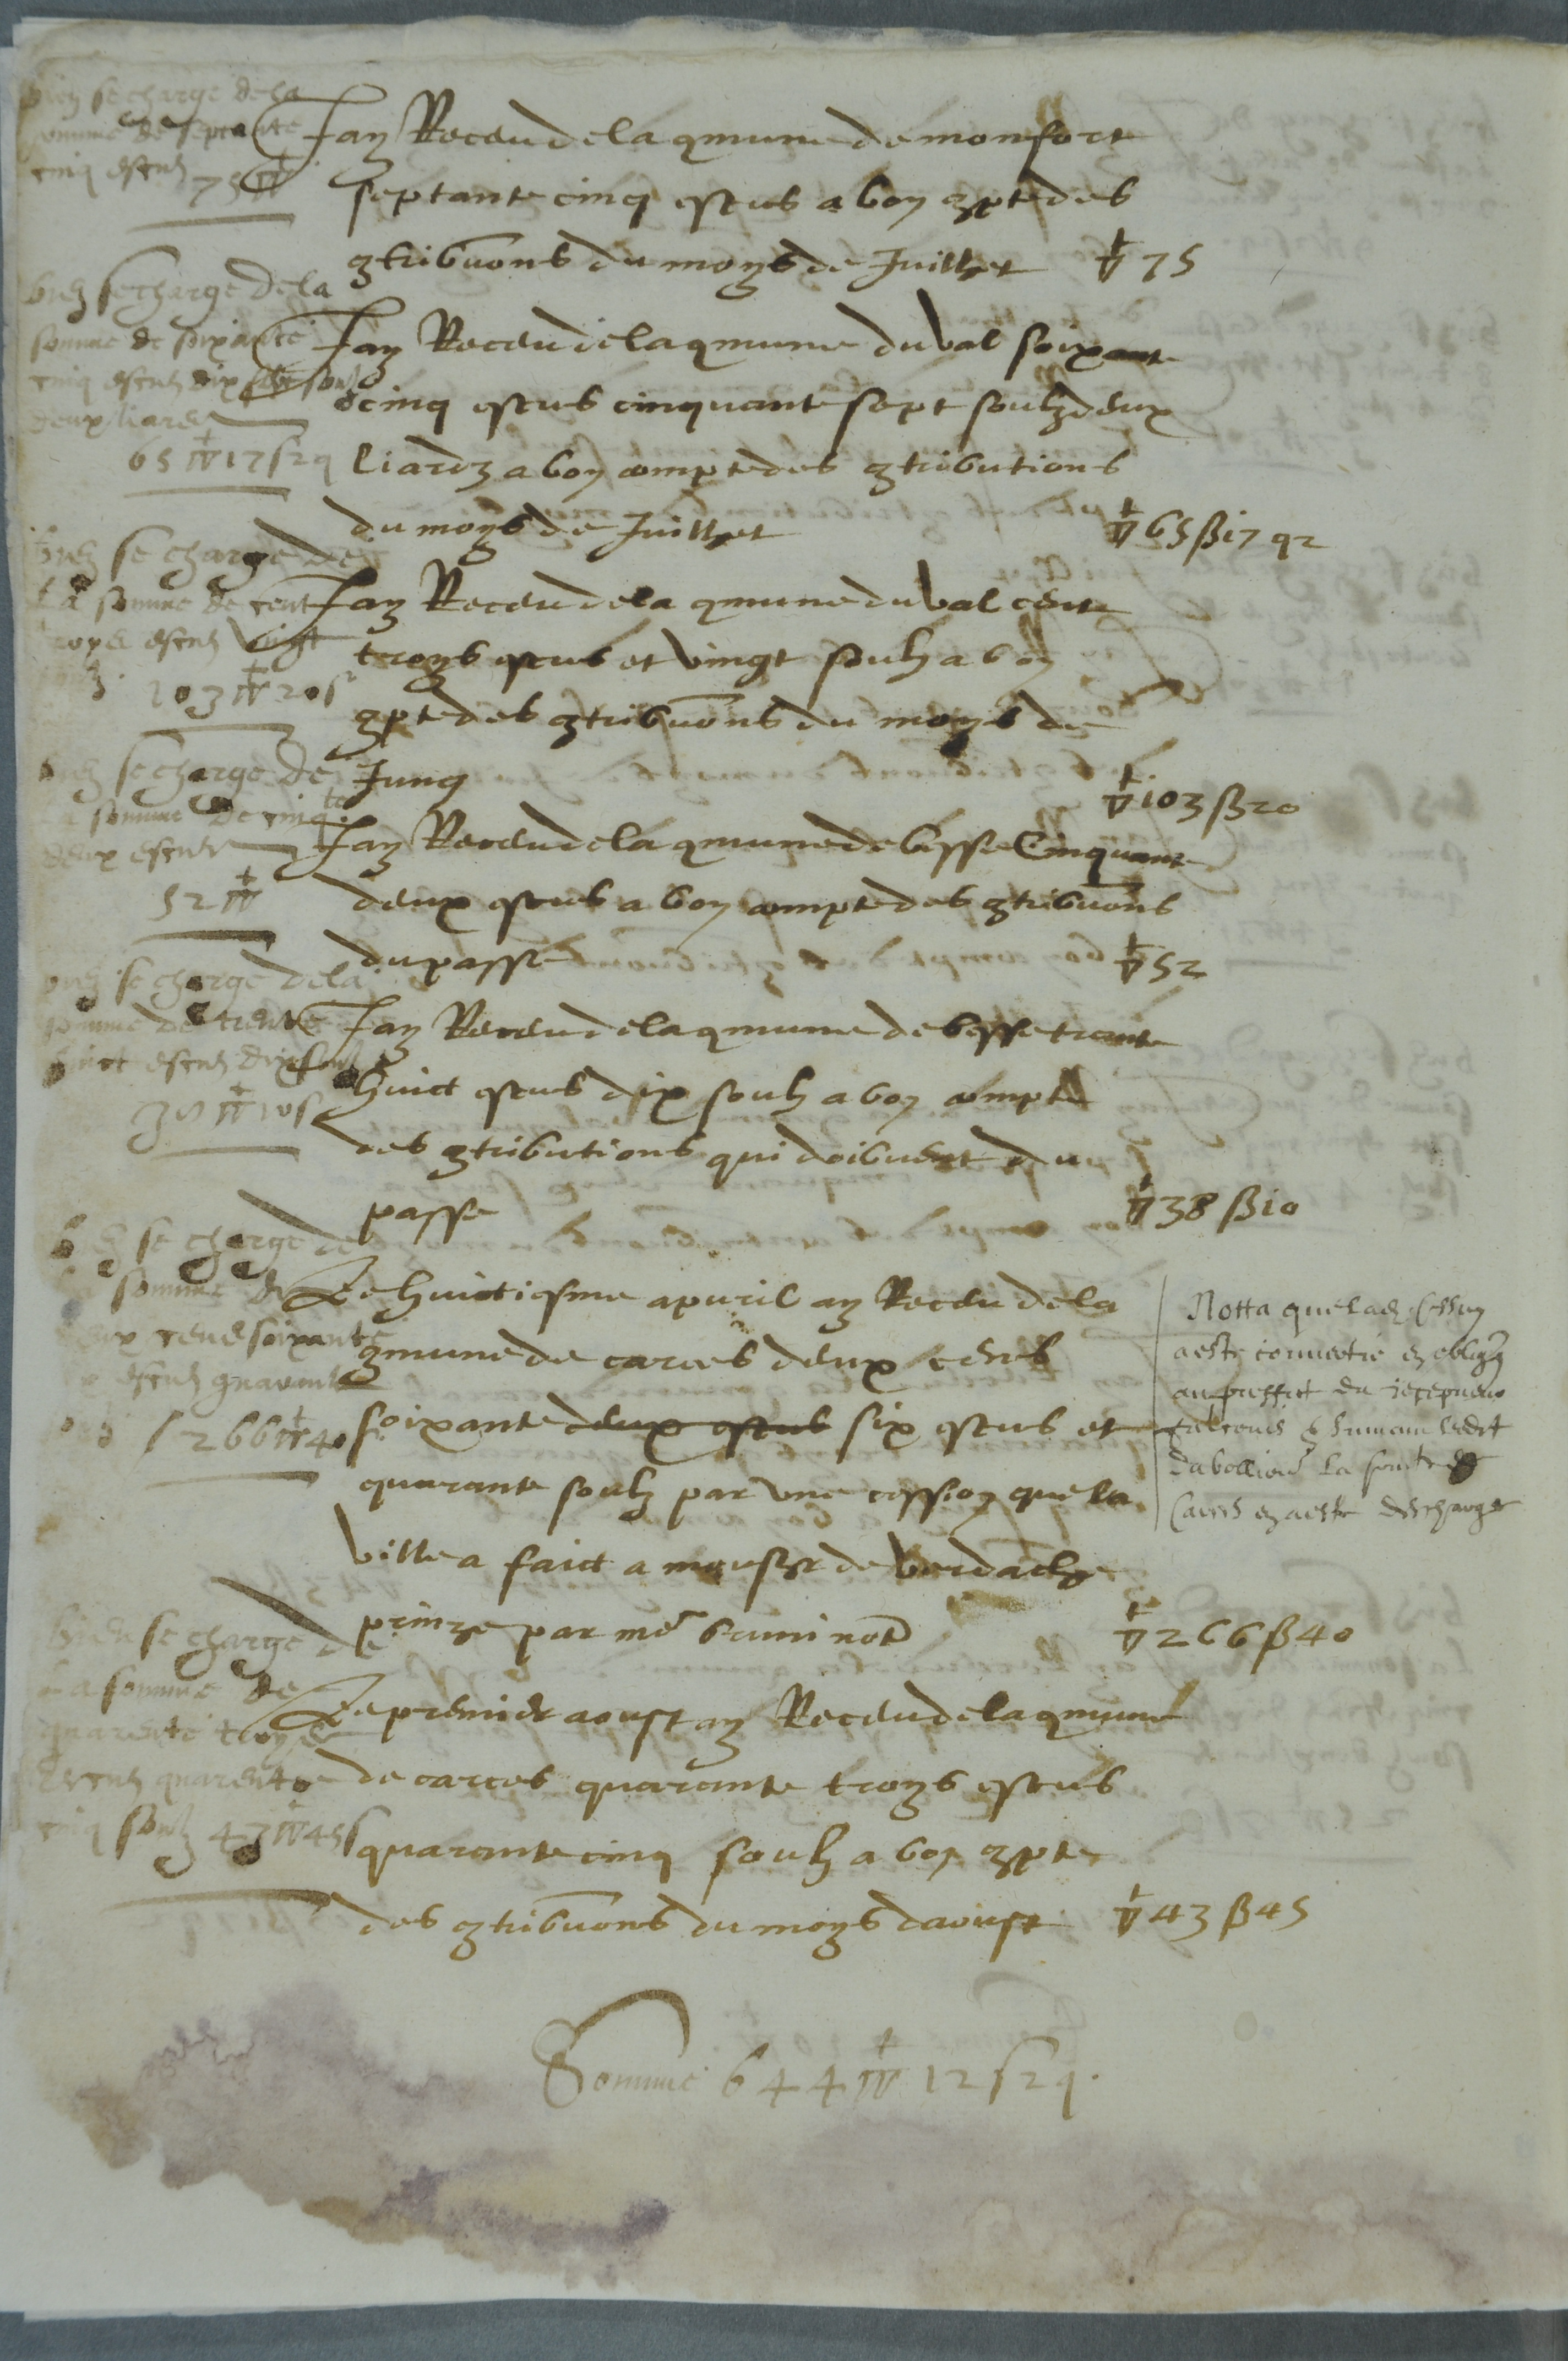 bien se charge de la
somme de septante
cinq escus 75 ▽
Jay Receu de la qmune de monfort
septante cinq escus a bon qpte des
qtribuons du moys de Juillet ▽ 75
bien se charge de la
somme de soixante
cinq escus dix sept soulz
deux liards
65 ▽ 17 s 2 q
Jay Receu de la qmune du val soixante
cinq escus cinquante sept soulz deux
liardz a bon compte des qtributions
du moys de Juillet ▽ 65 ß 17 q 2
bien se charge de
la somme de cent
troys escus vingt
103 ▽ 20 s
Jay Receu de la qmune du val cent
troys escus et vingt soulz a bon
qpte des qtribuons du moys de
Jung ▽ 103 ß 20
bien se charge de
la somme de cinqte
deux escus
52 ▽
Jay Receu de la qmune de besse Cinquante
deux escus a bon compte des qtribuons
du passe ▽ 52
bien se charge de la
somme de trente
huict escus dix soulz
38 ▽ 10 s
Jay Receu de la qmune de besse trante
huict escus dix soulz a bon compte
des qtributions qui doibuent du
passe ▽ 38 ß 10
bien se charge de
la somme de
deux cens soixante
six escus quarante
266 ▽ 40 s
Le huictiesme apvril ay Receu de la
qmune de carces deux cens
soixante deux escus six escus et
quarante soulz par une cession que la
ville a faict a monsr de verdache
prinze par me bruni note ▽ 266 ß 40
Notta que lad. Cession
a este convertie en obligõn
au proffict du
la somte de
Carces en a este descharge
bien se charge de
la somme de
quarente troys
escus quarente
cinq soulz 43 ▽ 45 s
Le premier aoust ay Receu de la qmune
de carces quarante troys escus
quarante cinq soulz a bon qpte
des qtribuons du moys daoust ▽ 43 ß 45
Somme 644 ▽ 12 s 2 q.